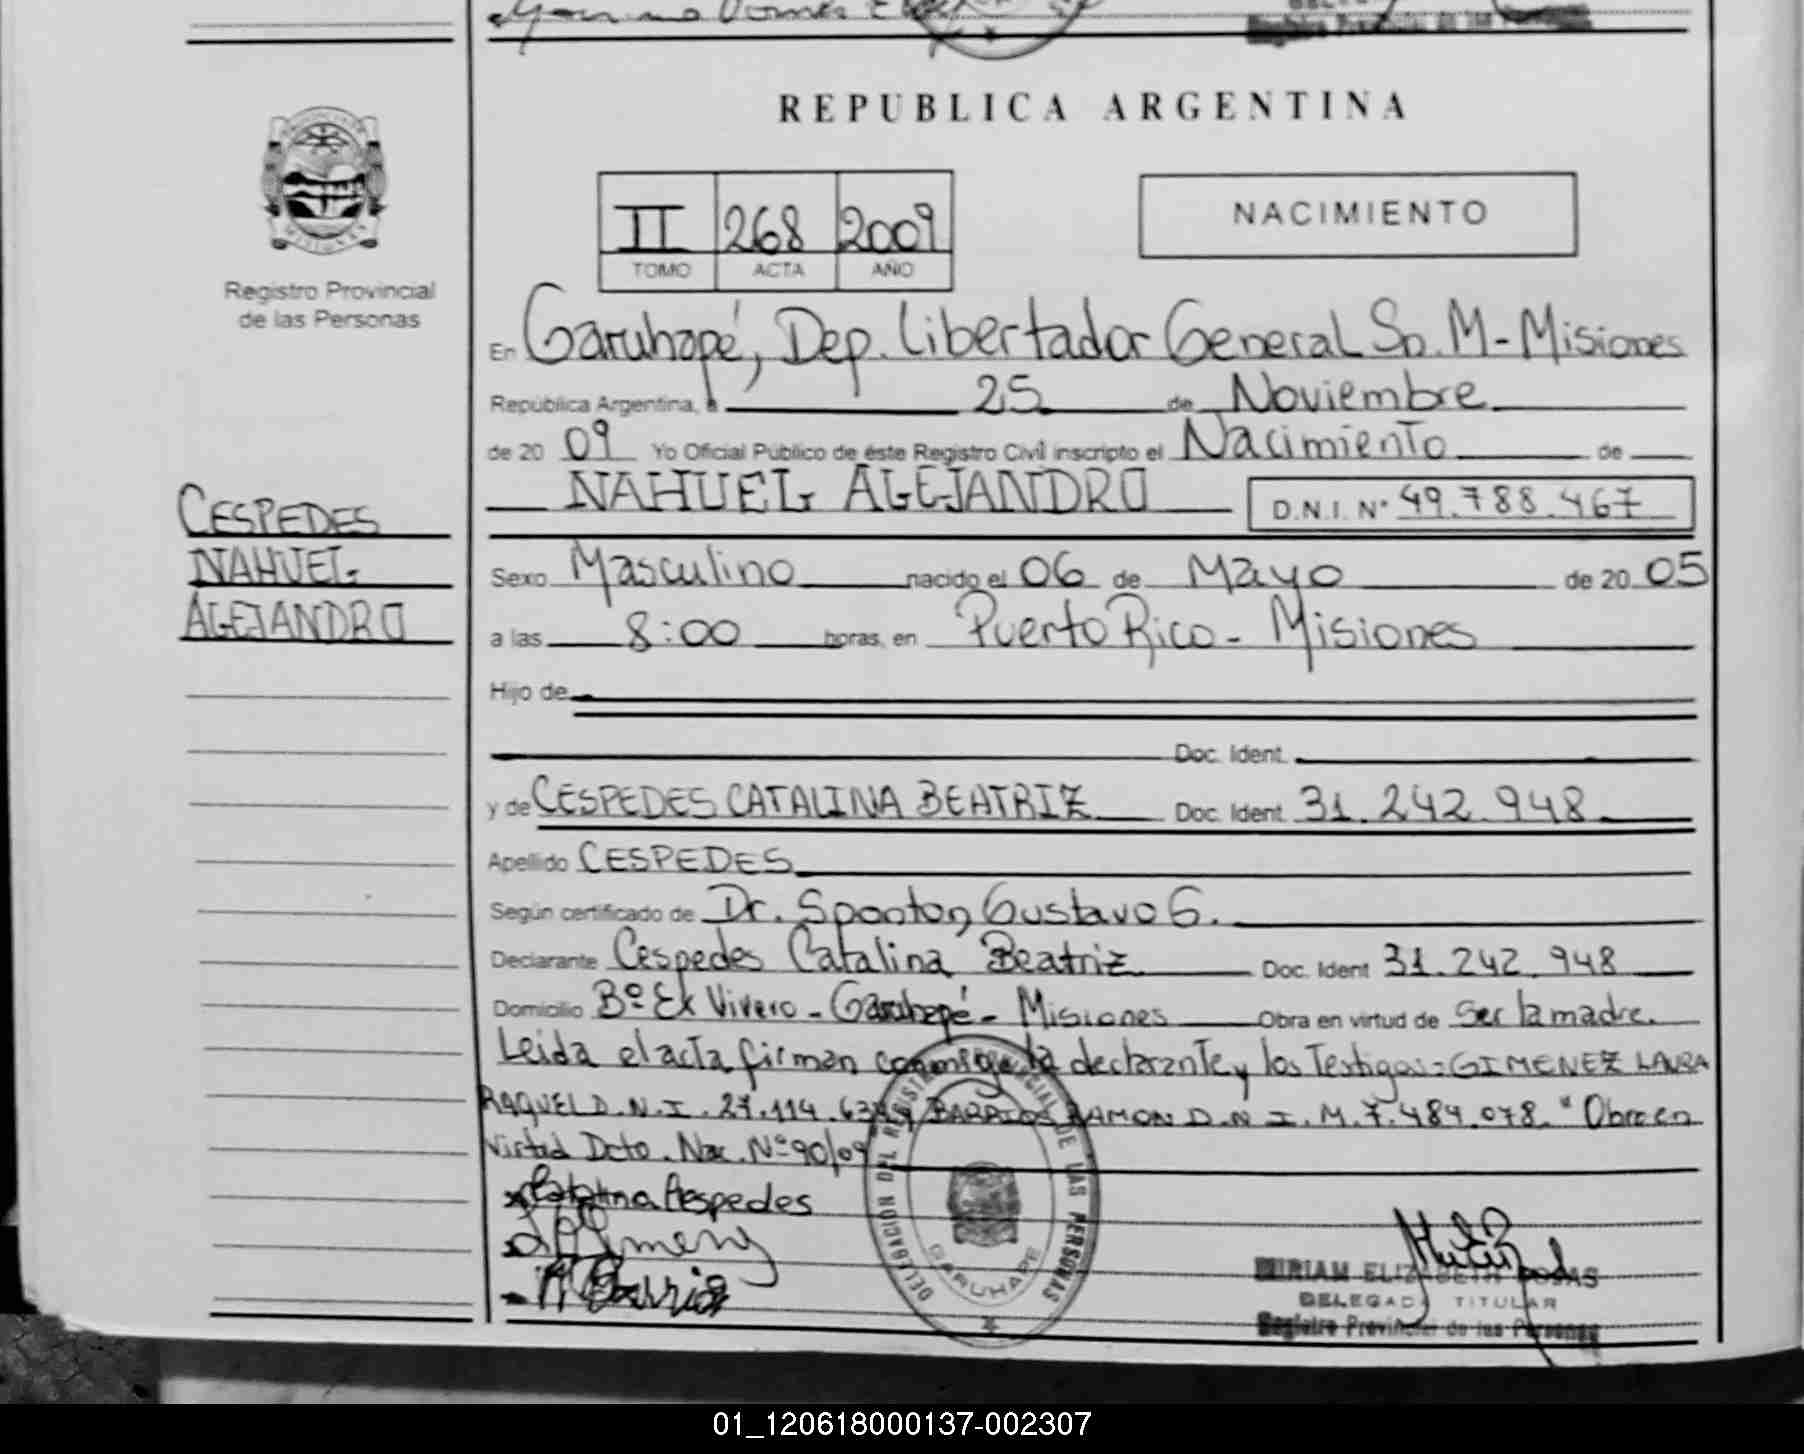 REPUBLICA ARGENTINA
II 268 2009
TOMO ACTA AÑO
NACIMIENTO
Registro Provincial
de las Personas
En Garuhapé, Dep. Libertador General Sn. M - Misiones
República Argentina, a 25 de Noviembre
de 20 09 Yo Oficial Público de éste Registro Civil inscripto el Nacimiento de
NAHUEL ALEJANDRO D.N.I. N° 49.788.467
CESPEDES
NAHUEL
ALEJANDRO
Sexo Masculino nacido el 06 de Mayo de 20 05
a las 8:00 horas, en Puerto Rico - Misiones
Hijo de
Doc. Ident.
y de CESPEDES CATALINA BEATRIZ Doc. Ident 31.242.948
Apellido CESPEDES
Según certificado de Dr. Sponton, Gustavo G.
Declarante Cespedes Catalina Beatriz Doc. Ident 31.242.948
Domicilio B° Ex Vivero - Garuhapé - Misiones Obra en virtud de Ser la madre.
Leida el acta firman conmigo la declarante y los Testigos: GIMENEZ LAURA
RAQUEL D.N.I. 27.114. BARRIOS RAMON D.N.I. M. 7.484.078. "Obra en
Virtud Dcto. Nac. N° 90/09
Catalina Cespedes
Gimenez
R Barrios
DELEGACION DEL REGISTRO PROVINCIAL DE LAS PERSONAS
GARUHAPE
MIRIAM ELIZABETH ROSAS
DELEGADA TITULAR
Registro Provincial de las Personas
01_120618000137-002307